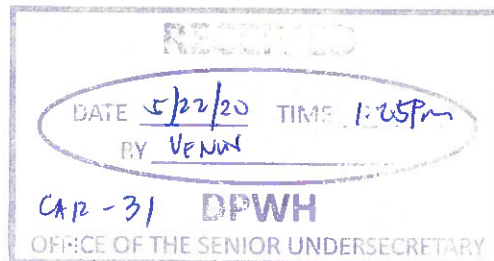 RECEIVED
DATE 5/22/20 TIME 1:25Pm
BY
CAR-31 DPWH
OFFICE OF THE SENIOR UNDERSECRETARY